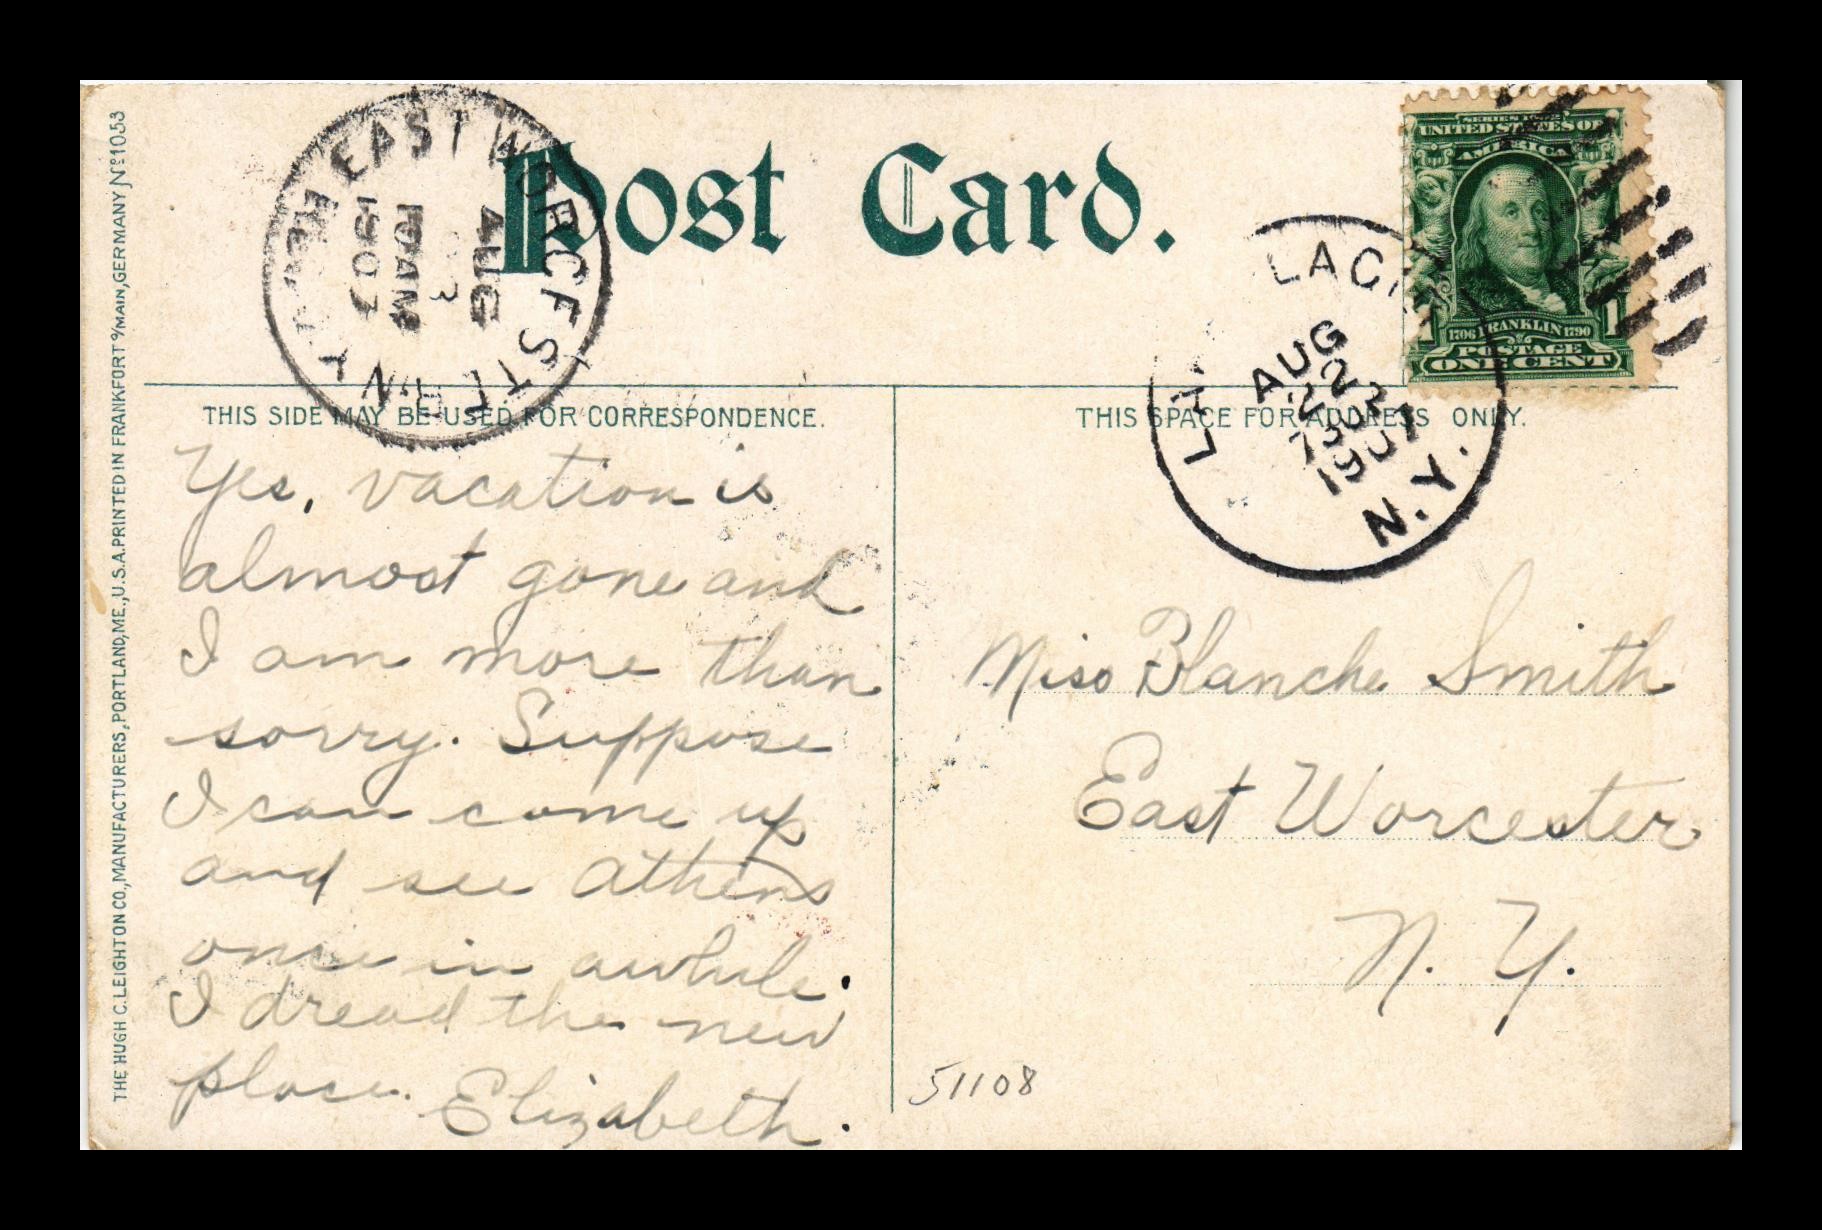 THE HUGH C. LEIGHTON CO., MANUFACTURERS, PORTLAND, ME., U.S.A. PRINTED IN FRANKFORT o/MAIN, GERMANY No 1053
EAST WORCESTER N.Y.
AUG
1907
Post Card.
SERIES 1902
UNITED STATES OF
AMERICA
1706 FRANKLIN 1790
1 1
POSTAGE
ONE CENT
LACK
AUG 23
730
1907
N.Y.
THIS SIDE MAY BE USED FOR CORRESPONDENCE.
Yes, vacation is
almost gone and
I am more than
sorry. Suppose
I can come up
and see Athens
once in awhile.
I dread the new
place. Elizabeth.
THIS SPACE FOR ADDRESS ONLY.
Miss Blanche Smith
East Worcester
N. Y.
51108